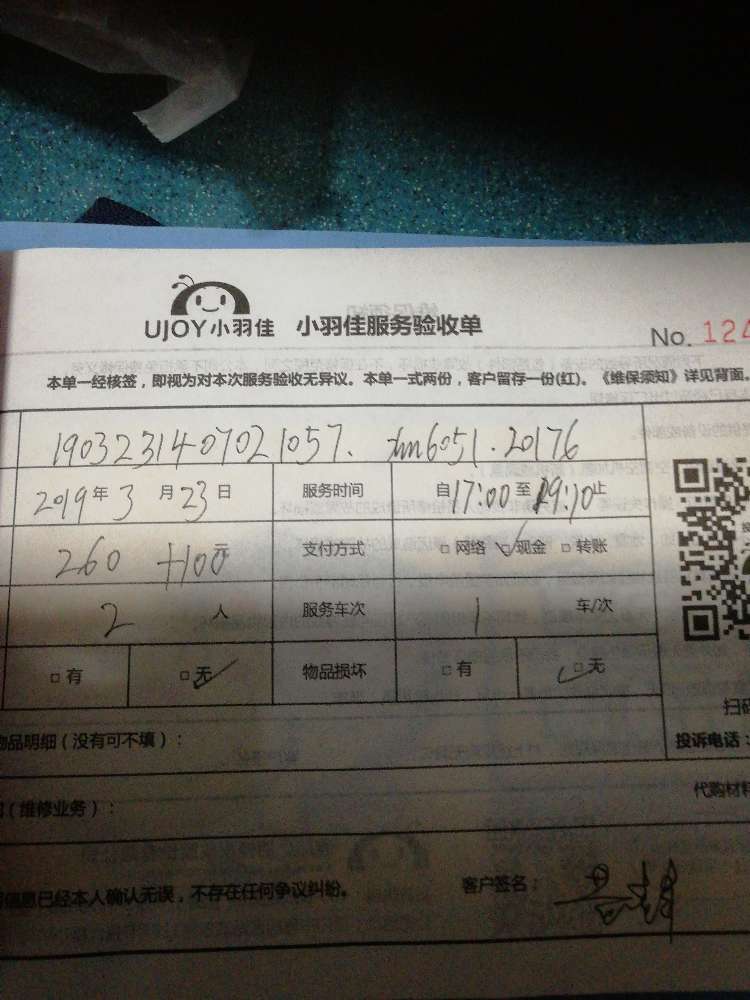 UJOY小羽佳 小羽佳服务验收单
No. 124
本单一经核签，即视为对本次服务验收无异议。本单一式两份，客户留存一份(红)。《维保须知》详见背面。
1903231407021057.
2019年3月23日 服务时间 自17:00至19:10止
260 +100元 支付方式 □网络 □现金 □转账
2人 服务车次 1车/次
□有 □无 物品损坏 □有 □无
物品明细（没有可不填）：
扫码
投诉电话：
（维修业务）：
代购材料
信息已经本人确认无误，不存在任何争议纠纷。 客户签名：